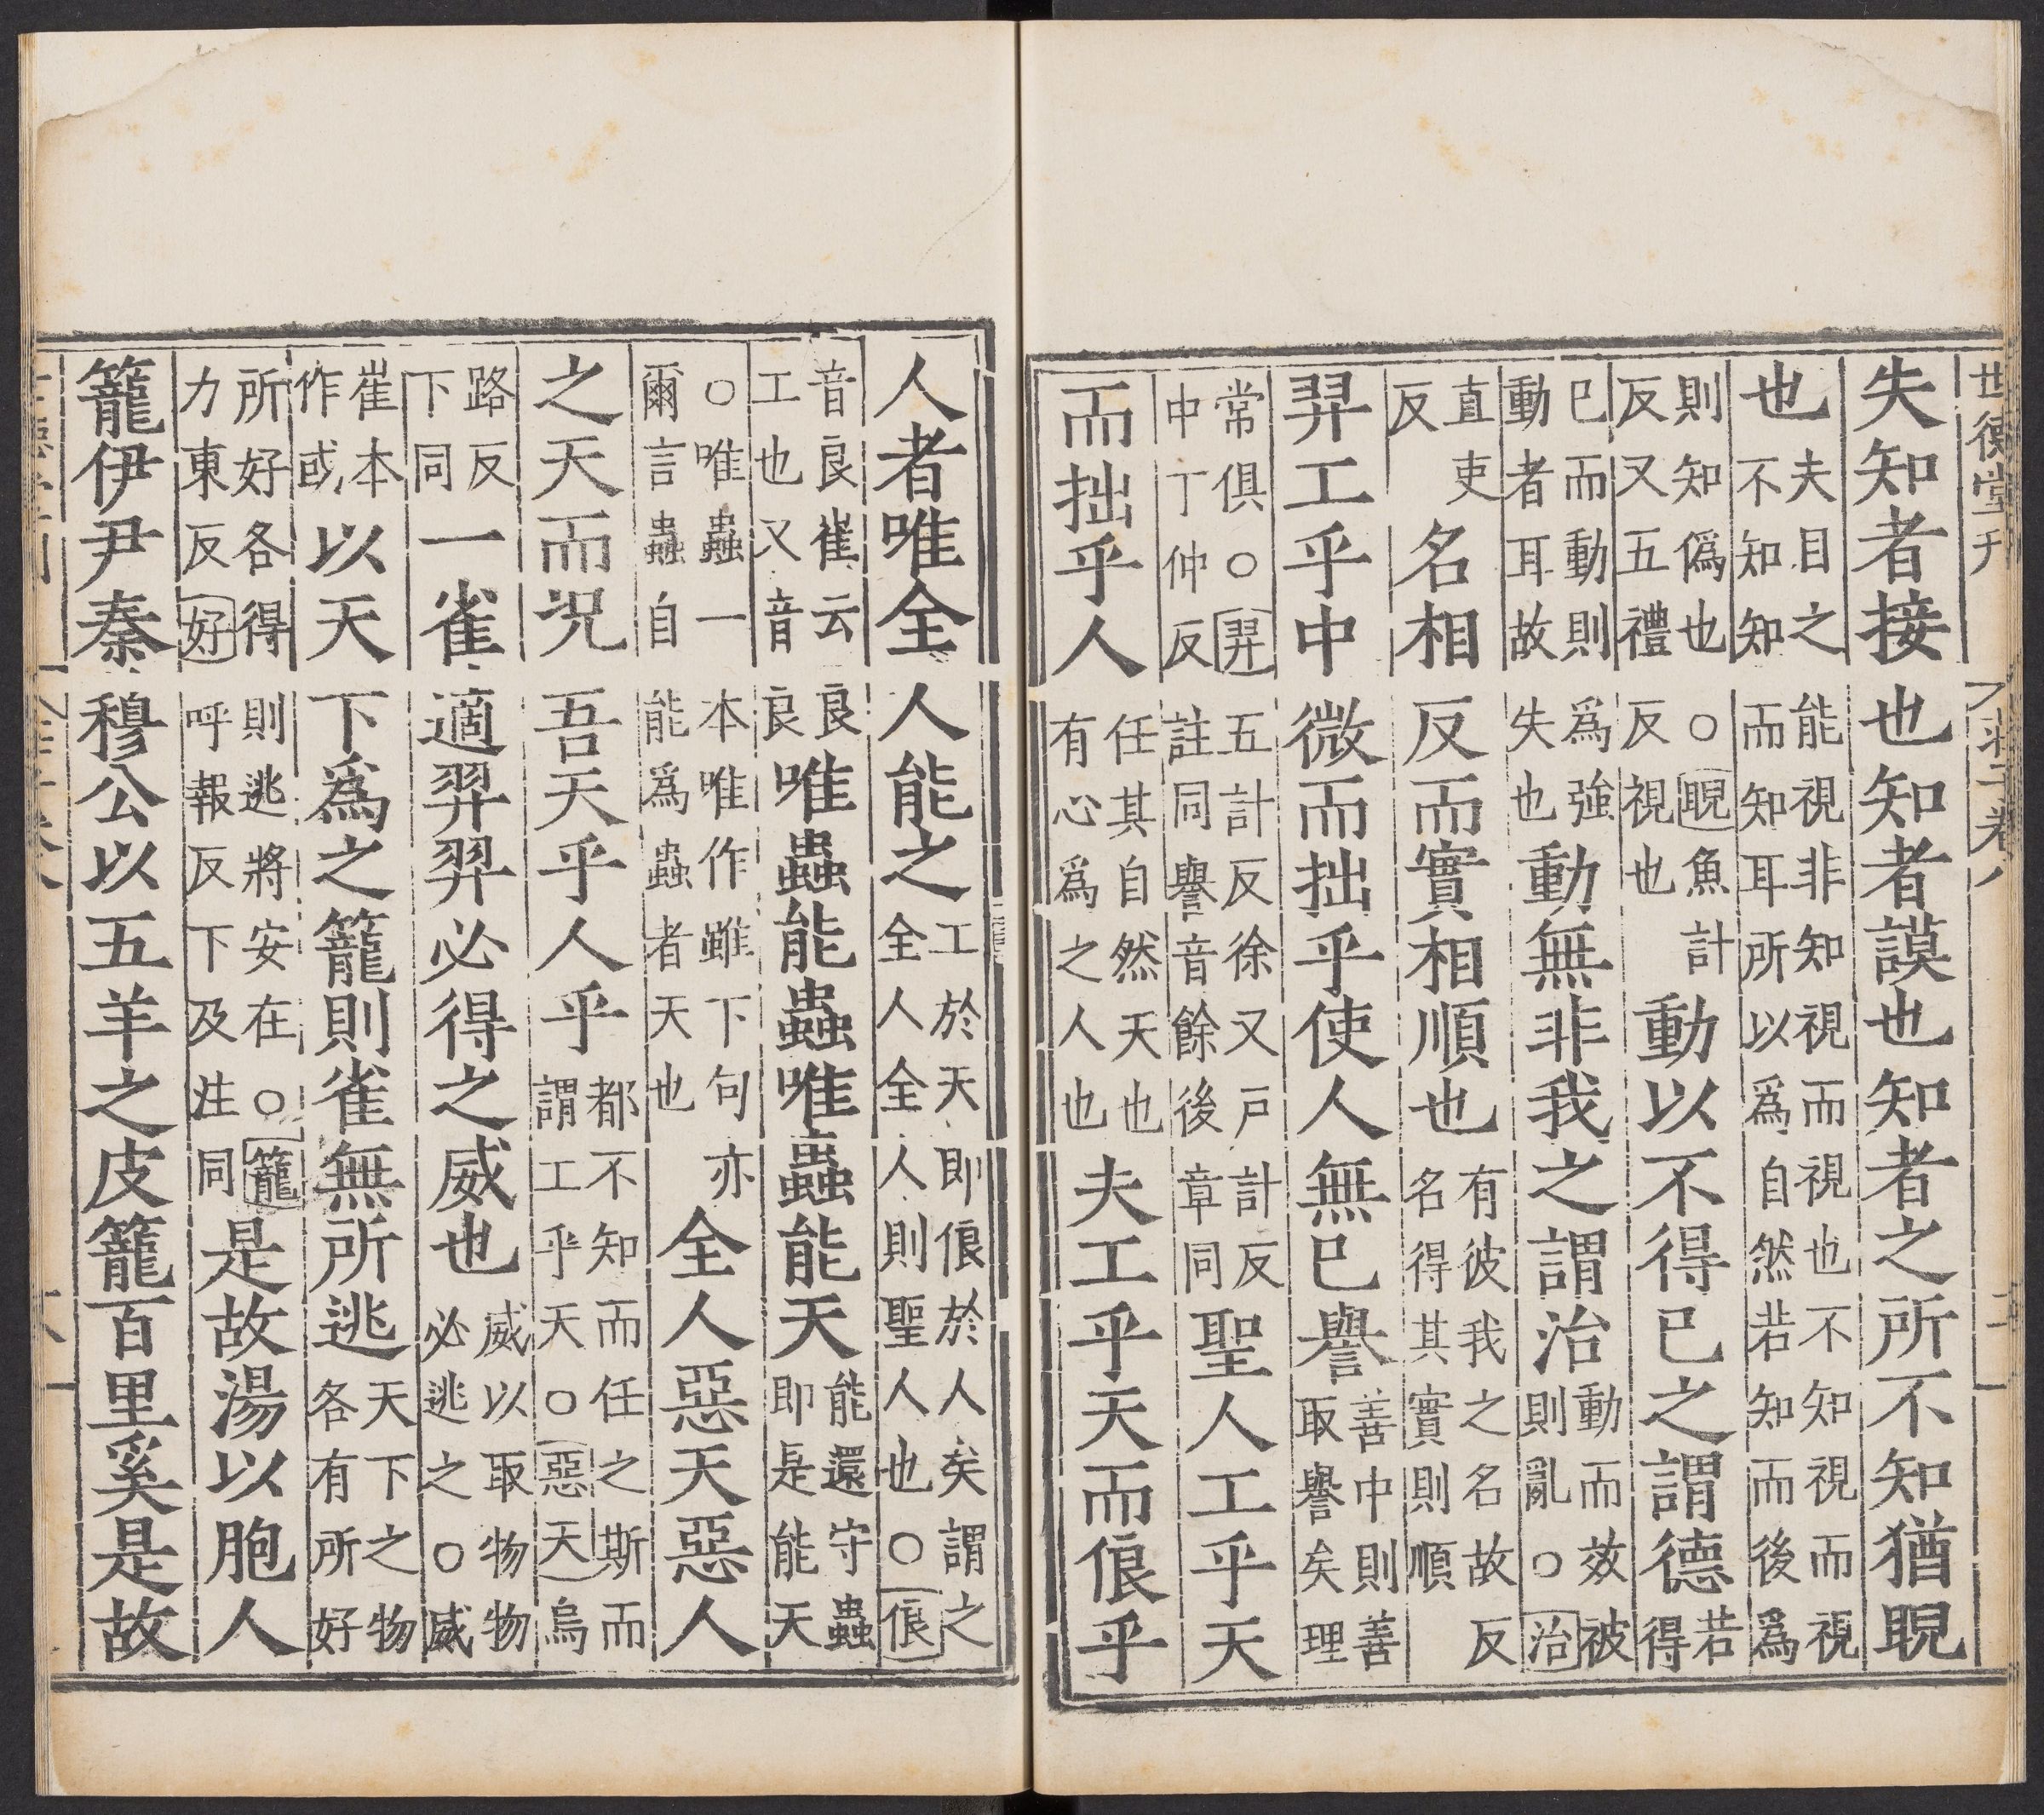 世德堂刊 莊子卷八
失知者接也知者謨也知者之所不知猶睨
也夫目之能視非知視而視也不知視而視不知知而知耳所以爲自然若知而後爲
則知僞也○睨魚計反又五禮反視也動以不得已之謂德若得
已而動則爲強動者耳故失也動無非我之謂治動而效彼則亂○治
直吏反名相反而實相順也有彼我之名故反名得其實則順
羿工乎中微而拙乎使人無已譽善中則善取譽矣理
常俱○羿五計反徐又戸計反中丁仲反註同譽音餘後章同聖人工乎天
而拙乎人任其自然天也有心爲之人也夫工乎天而俍乎
人者唯全人能之工於天即俍於人矣謂之全人全人則聖人也○俍
音良崔云良工也又音良唯蟲能蟲唯蟲能天能還守蟲即是能天
○唯蟲一本唯作雖下句亦爾言蟲自能爲蟲者天也全人惡天惡人
之天而況吾天乎人乎都不知而任之斯而謂工乎天○惡天烏
路反下同一雀適羿羿必得之威也威以取物物必逃之○威
崔本作或以天下爲之籠則雀無所逃天下之物各有所好
所好各得則逃將安在○籠力東反好呼報反下及注同是故湯以胞人
籠伊尹秦穆公以五羊之皮籠百里奚是故